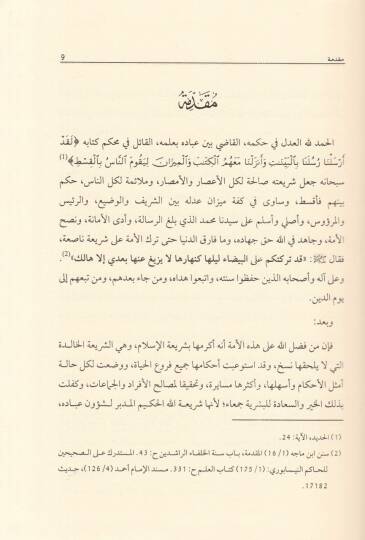 مقدمة 9
مُقَدِّمَة
الحمد لله العدل في حكمه، القاضي بين عباده بعلمه، القائل في محكم كتابه ﴿لَقَدْ
أَرْسَلْنَا رُسُلَنَا بِالْبَيِّنَتِ وَأَنزَلْنَا مَعَهُمُ الْكِتَبَ وَالْمِيزَانَ لِيَقُومَ النَّاسُ بِالْقِسْطِ﴾(1)
سبحانه جعل شريعته صالحة لكل الأعصار والأمصار، وملائمة لكل الناس، حكم
بينهم فأقسط، وساوى في كفة ميزان عدله بين الشريف والوضيع، والرئيس
والمرؤوس، وأصلي وأسلم على سيدنا محمد الذي بلغ الرسالة، وأدى الأمانة، ونصح
الأمة، وجاهد في الله حق جهاده، وما فارق الدنيا حتى ترك الأمة على شريعة ناصعة،
فقال ﷺ: «قد تركتكم على البيضاء ليلها كنهارها لا يزيغ عنها بعدي إلا هالك»(2).
وعلى آله وأصحابه الذين حفظوا سنته، واتبعوا هداه، ومن جاء بعدهم، ومن تبعهم إلى
يوم الدين.
وبعد:
فإن من فضل الله على هذه الأمة أنه أكرمها بشريعة الإسلام، وهي الشريعة الخالدة
التي لا يلحقها نسخ، وقد استوعبت أحكامها جميع فروع الحياة، ووضعت لكل حالة
أمثل الأحكام وأسهلها، وأكثرها مسايرة، وتحقيقا لمصالح الأفراد والجماعات، وكفلت
بذلك الخير والسعادة للبشرية جمعاء؛ لأنها شريعة الله الحكيم المدبر لشؤون عباده،
(1) الحديد، الآية: 24.
(2) سنن ابن ماجه (1/ 16) المقدمة، باب سنة الخلفاء الراشدين ح: 43. المستدرك على الصحيحين
للحاكم النيسابوري: (1/ 175) كتاب العلم ح: 331. مسند الإمام أحمد (4/ 126)، حديث
17182.